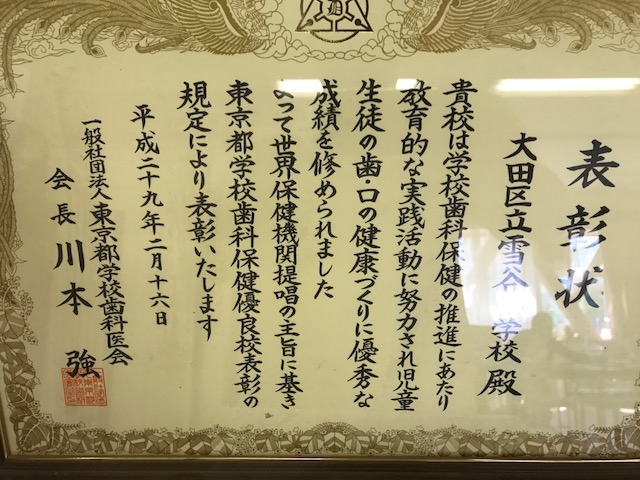 表彰状
大田区立雪谷 学校殿
貴校は学校歯科保健の推進にあたり
教育的な実践活動に努力され児童
生徒の歯・口の健康づくりに優秀な
成績を修められました
よって世界保健機関提唱の主旨に基き
東京都学校歯科保健優良校表彰の
規定により表彰いたします
平成二十九年二月十六日
一般社団法人東京都学校歯科医会
会長川本強